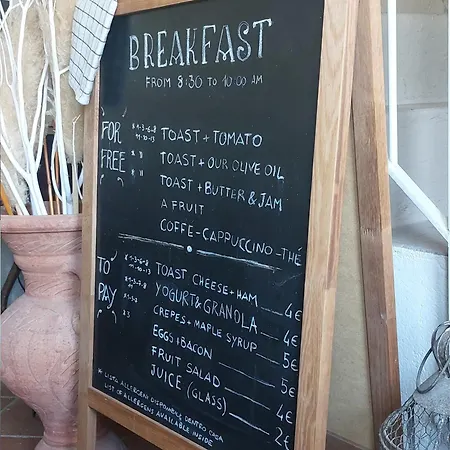 BREAKFAST
FROM 8:30 TO 10:00 AM
FOR FREE
TOAST + TOMATO
TOAST + OUR OLIVE OIL
TOAST + BUTTER & JAM
A FRUIT
COFFE - CAPPUCCINO - THÉ
TO PAY
TOAST CHEESE + HAM 4€
YOGURT & GRANOLA 4€
CREPES + MAPLE SYRUP 5€
EGGS + BACON 5€
FRUIT SALAD 4€
JUICE (GLASS) 2€
* LISTA ALLERGENI DISPONIBILE DENTRO CASA
LIST OF ALLERGENS AVAILABLE INSIDE